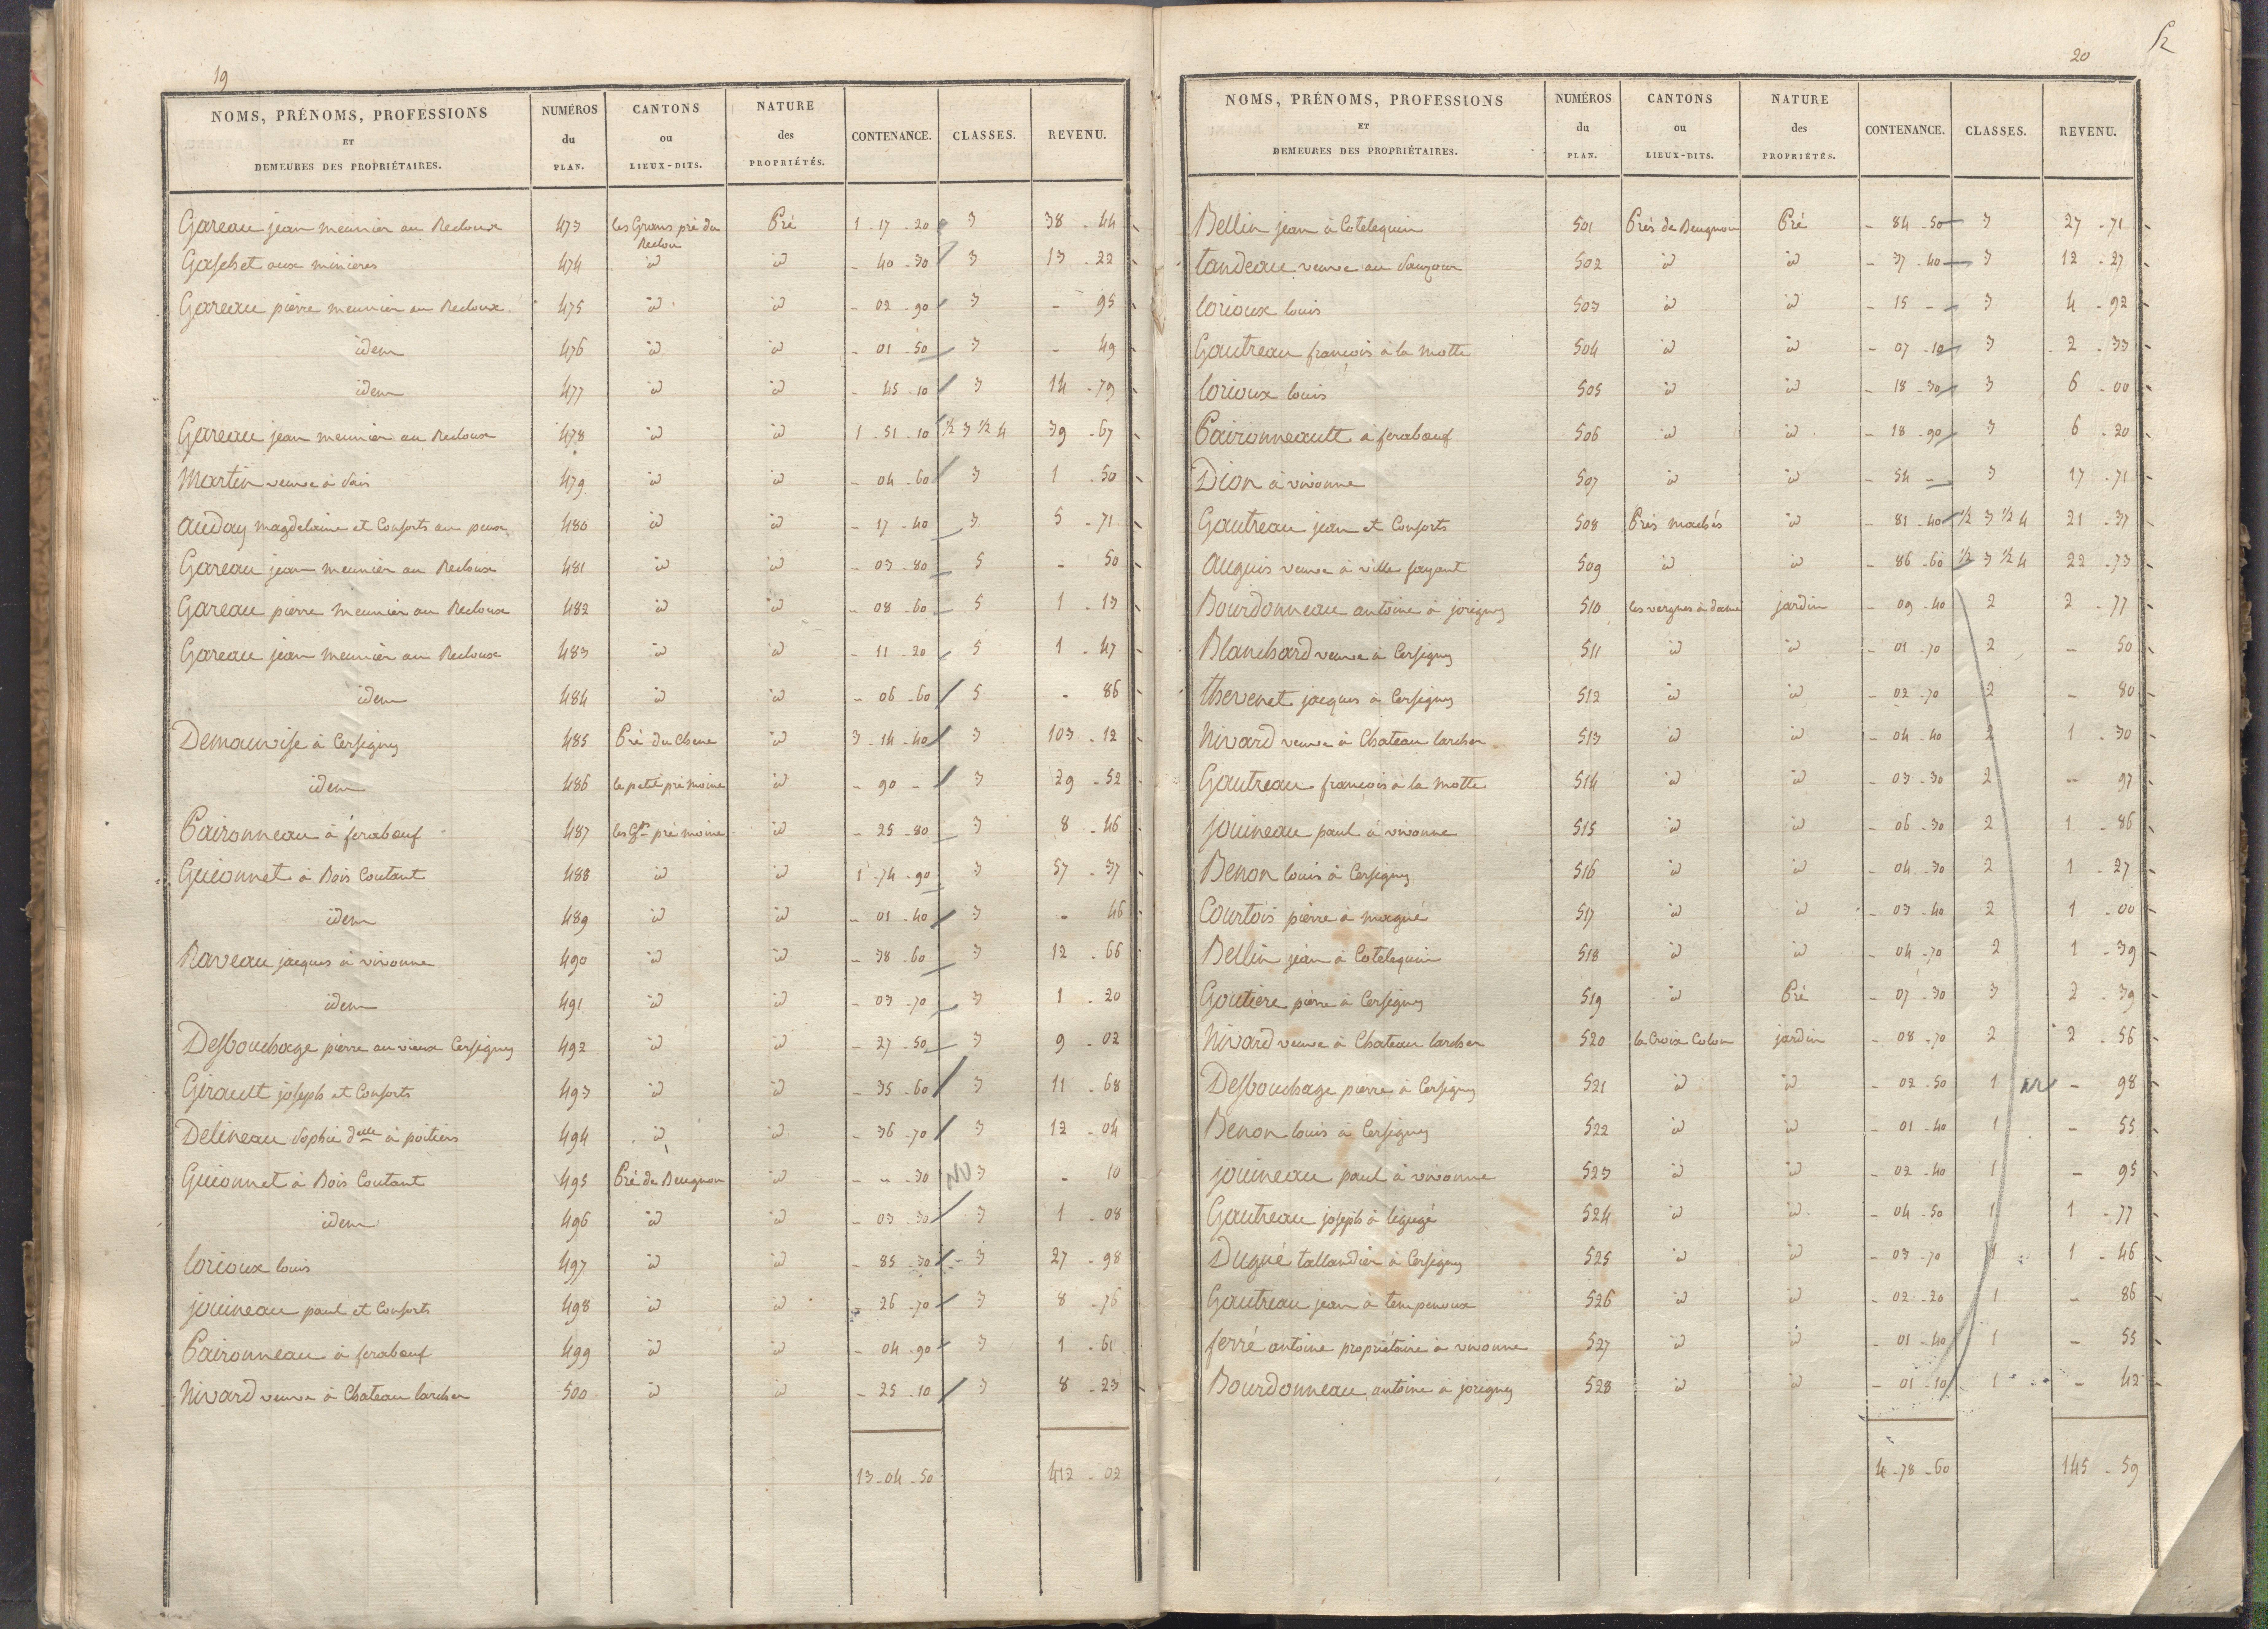 19
NOMS, PRÉNOMS, PROFESSIONS ET DEMEURES DES PROPRIÉTAIRES. NUMÉROS du PLAN. CANTONS ou LIEUX-DITS. NATURE des PROPRIÉTÉS. CONTENANCE. CLASSES. REVENU.
Gareau jean meunier au Recloux 473 les Grans pré du Reclou Pré 1 - 17 - 20 3 38 - 44
Gaschet aux minieres 474 id id - 40 - 30 3 13 - 22
Gareau pierre meunier au Recloux 475 id id - 02 - 90 3 - 95
idem 476 id id - 01 - 50 3 - 49
idem 477 id id - 45 - 10 3 14 - 79
Gareau jean meunier au Recloux 478 id id 1 - 51 - 10 ½ 3 ½ 4 39 - 67
Martin veuve à Vais 479 id id - 04 - 60 3 1 - 50
auday magdelaine et Consorts au peux 480 id id - 17 - 40 3 5 - 71
Gareau jean meunier au Recloux 481 id id - 03 - 80 5 - 50
Gareau pierre meunier au Recloux 482 id id - 08 - 60 5 1 - 13
Gareau jean meunier au Recloux 483 id id - 11 - 20 5 1 - 47
idem 484 id id - 06 - 60 5 - 86
Demauvise à Cersigny 485 Pré du Chene id 3 - 14 - 40 3 103 - 12
idem 486 le petit pré moine id - 90 - 3 29 - 52
Paironneau à ferabœuf 487 les Gds pré moine id - 25 - 80 3 8 - 46
Guionnet à Bois Coutant 488 id id 1 - 74 - 90 3 57 - 37
idem 489 id id - 01 - 40 3 - 46
Raveau jacques à vivonne 490 id id - 38 - 60 3 12 - 66
idem 491 id id - 03 - 70 3 1 - 20
Desbouchage pierre au vieux Cersigny 492 id id - 27 - 50 3 9 - 02
Girault joseph et Consorts 493 id id - 35 - 60 3 11 - 68
Delineau sophie delle à poitiers 494 id id - 36 - 70 3 12 - 04
Guionnet à Bois Coutant 495 Pré de Beugnon id - - 30 3 - 10
idem 496 id id - 03 - 30 3 1 - 08
lorioux louis 497 id id - 85 - 30 3 27 - 98
jouineau paul et Consorts 498 id id - 26 - 70 3 8 - 76
Paironneau à ferabœuf 499 id id - 04 - 90 3 1 - 61
Nivard veuve à Chateau larcher 500 id id - 25 - 10 3 8 - 23
13 - 04 - 50 412 - 02
20
NOMS, PRÉNOMS, PROFESSIONS ET DEMEURES DES PROPRIÉTAIRES. NUMÉROS du PLAN. CANTONS ou LIEUX-DITS. NATURE des PROPRIÉTÉS. CONTENANCE. CLASSES. REVENU.
Bellin jean à Cotelequin 501 Prés de Beugnon Pré - 84 - 50 3 27 - 71
tandeau veuve au 502 id id - 37 - 40 3 12 - 27
lorioux louis 503 id id - 15 - 3 4 - 92
Gautreau françois à la motte 504 id id - 07 - 10 3 2 - 33
lorioux louis 505 id id - 18 - 30 3 6 - 00
Paironneault à ferabœuf 506 id id - 18 - 90 3 6 - 20
Dion à vivonne 507 id id - 54 - 3 17 - 71
Gautreau jean et Consorts 508 Prés machés id - 81 - 40 ½ 3 ½ 4 21 - 37
auguis veuve à ville fayant 509 id id - 86 - 60 ½ 3 ½ 4 22 - 73
Bourdonneau antoine à jorigny 510 les vergnes à dame jardin - 09 - 40 2 2 - 77
Blanchard veuve à Cersigny 511 id id - 01 - 70 2 - 50
thevenet jacques à Cersigny 512 id id - 02 - 70 2 - 80
Nivard veuve à Chateau larcher 513 id id - 04 - 40 2 1 - 30
Gautreau françois à la motte 514 id id - 03 - 30 2 - 97
jouineau paul à vivonne 515 id id - 06 - 30 2 1 - 86
Benon louis à Cersigny 516 id id - 04 - 30 2 1 - 27
Courtois pierre à magné 517 id id - 03 - 40 2 1 - 00
Bellin jean à Cotelequin 518 id id - 04 - 70 2 1 - 39
Goutiere pierre à Cersigny 519 id Pré - 07 - 30 3 2 - 39
Nivard veuve à Chateau larcher 520 la Croix Colon jardin - 08 - 70 2 2 - 56
Desbouchage pierre à Cersigny 521 id id - 02 - 50 1 - 98
Benon louis à Cersigny 522 id id - 01 - 40 1 - 55
jouineau paul à vivonne 523 id id - 02 - 40 1 - 95
Gautreau joseph à ligugé 524 id id - 04 - 50 1 1 - 77
Dugué tallandier à Cersigny 525 id id - 03 - 70 1 1 - 46
Gautreau jean à tempenoux 526 id id - 02 - 20 1 - 86
ferré antoine propriétaire à vivonne 527 id id - 01 - 40 1 - 55
Bourdonneau antoine à jorigny 528 id id - 01 - 10 1 - 42
4 - 78 - 60 145 - 59